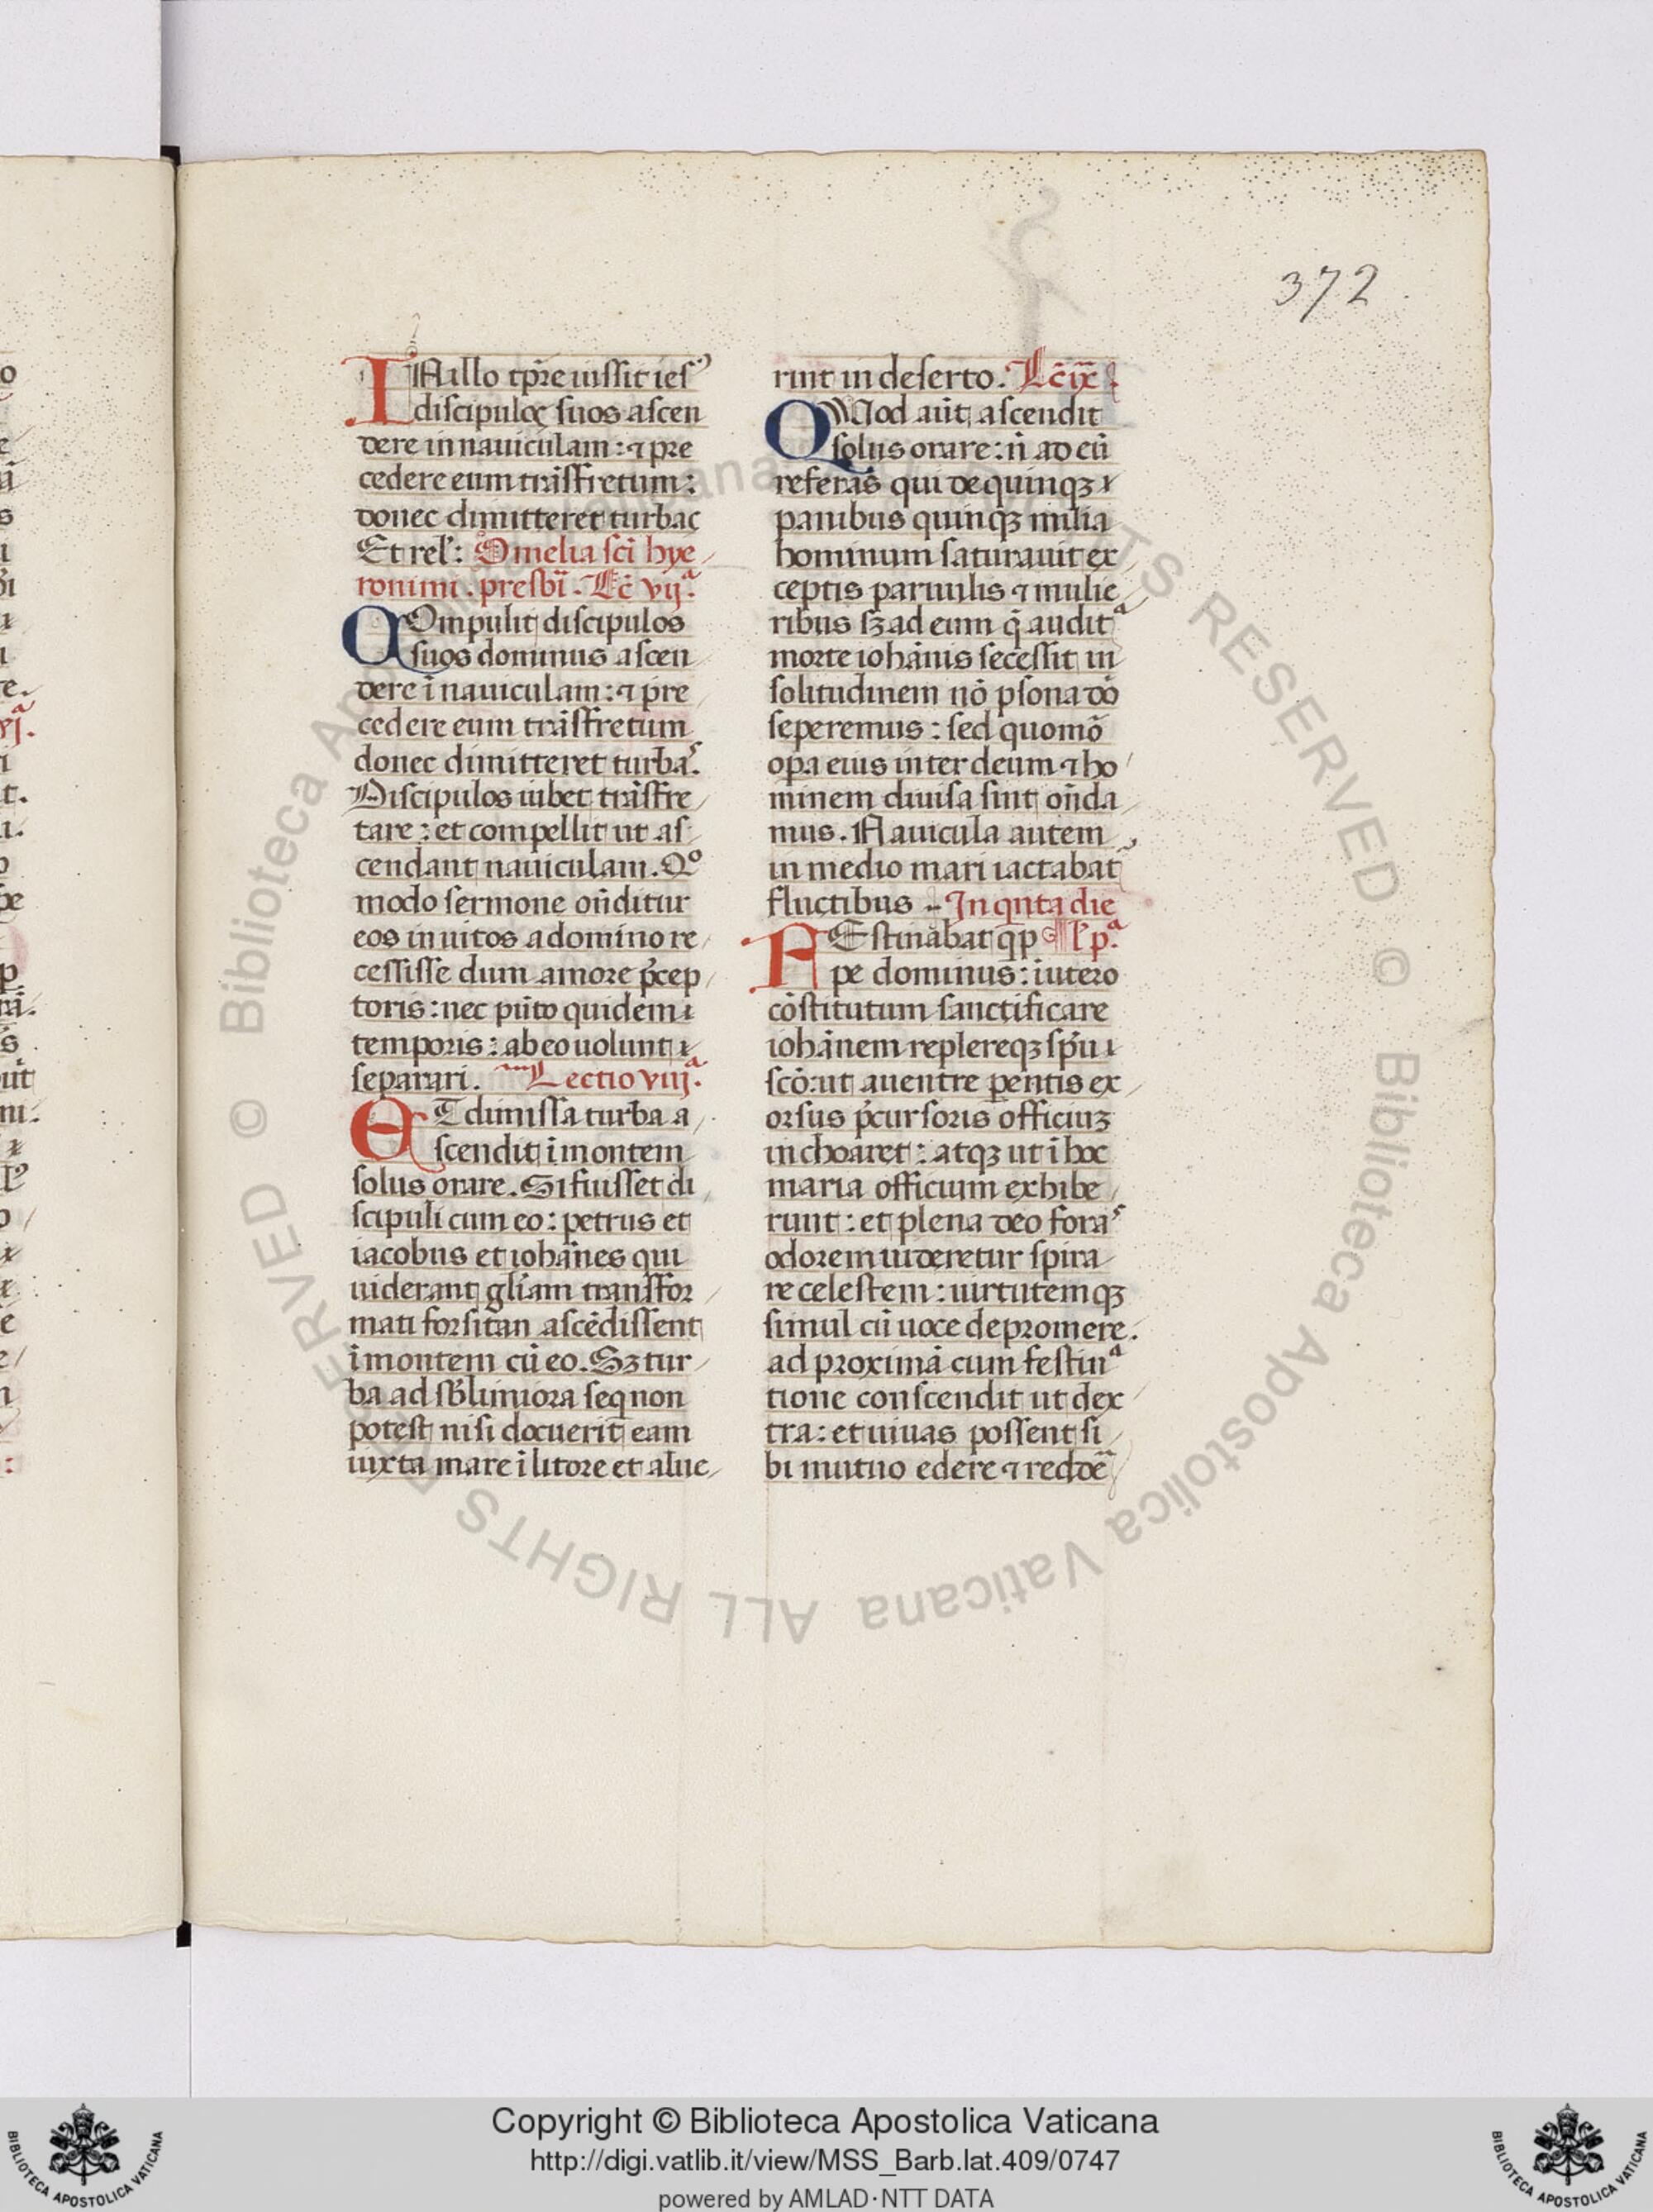 372
IN illo tp̄re iussit ies⁹
discipulos suos ascen
dere in nauiculam: ⁊ pre
cedere eum trāsfretum:
donec dimitteret turbas
Et rel': Omelia sci hye
ronimi. presbi. Lc̄ vijª.
COmpulit discipulos
suos dominus ascen
dere ī nauiculam: ⁊ pre
cedere eum trāsfretum
donec dimitteret turbas.
Discipulos iubet trāsfre
tare: et compellit ut as
cendant nauiculam. Qº
modo sermone on̄ditur
eos inuitos a domino re
cessisse dum amore p̄cep
toris: nec pūto quidem
temporis: ab eo uolunt
separari. Lectio viijª.
ET dimissa turba a
scendit ī montem
solus orare. Si fuisset di
scipuli cum eo: petrus et
iacobus et iohānes qui
uiderant gliam transfor
mati forsitan ascēdissent
ī montem cū eo. Sꝫ tur
ba ad sbliniora seq non
potest nisi docuerit eam
iuxta mare ī litore et alue
rint in deserto. Lc̄ ix
QUod aūt ascendit
solus orare: n̄ ad eū
referas qui de quinqꝫ
panibus quinqꝫ milia
hominum saturauit ex
ceptis paruulis ⁊ mulie
ribus sꝫ ad eum q̄ auditª
morte iohānis secessit in
solitudinem nō psona dō
seperemus: sed quomō
opa eius inter deum ⁊ ho
minem diuisa sint on̄da
mus. Nauicula autem
in medio mari iactabat
fluctibus In qnta die
FEstinabat qp l' pª.
pe dominus: īutero
cōstitutum sanctificare
iohānem replereqꝫ spū
scō: ut auentre pentis ex
orsus p̄cursoris officiuꝫ
inchoaret: atqꝫ ut ī hoc
maria officium exhibe
runt: et plena deo foras
odorem uideretur spira
re celestem: uirtutemqꝫ
simul cū uoce depromere.
ad proximā cum festinª
tione conscendit ut dex
tra: et uiuas possent si
bi mutuo edere ⁊ reddē
© Biblioteca Apostolica Vaticana ALL RIGHTS RESERVED
Copyright © Biblioteca Apostolica Vaticana
http://digi.vatlib.it/view/MSS_Barb.lat.409/0747
powered by AMLAD·NTT DATA
BIBLIOTECA APOSTOLICA VATICANA
BIBLIOTECA APOSTOLICA VATICANA